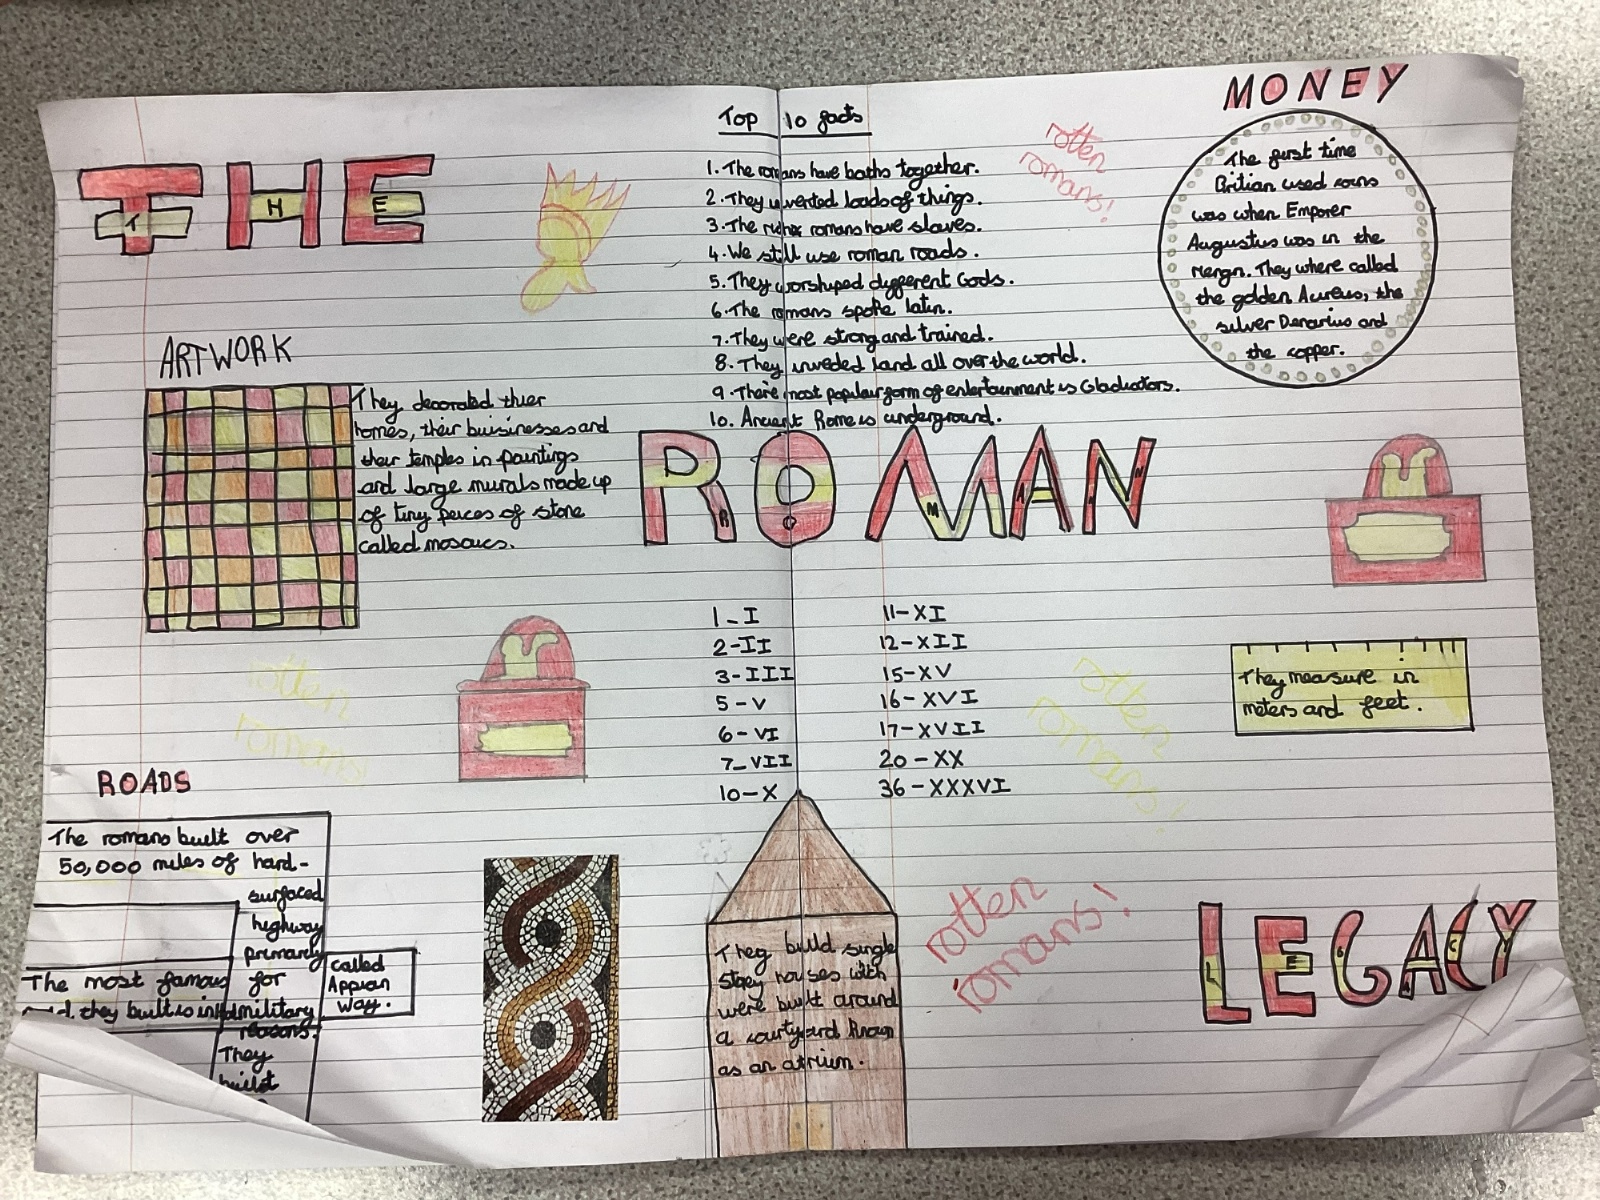 THE
T H E
Top 10 facts
1. The romans have baths together.
2. They invented loads of things.
3. The richer romans have slaves.
4. We still use roman roads.
5. They worshiped different Gods.
6. The romans spoke latin.
7. They were strong and trained.
8. They inveded land all over the world.
9. There most popular form of entertainment is Gladiators.
10. Ancient Rome is underground.
rotten
romans!
MONEY
The first time
Britian used coins
was when Emporer
Augustus was in the
reign. They where called
the golden Aureus, the
silver Denarius and
the copper.
ARTWORK
They decorated thier
homes, their buisinesses and
their temples in paintings
and large murals made up
of tiny peices of stone
called mosaics.
ROMAN
R O M A N
1-I
2-II
3-III
5-V
6-VI
7-VII
10-X
11-XI
12-XII
15-XV
16-XVI
17-XVII
20-XX
36-XXXVI
They measure in
meters and feet.
rotten
romans!
rotten
romans!
ROADS
The romans built over
50,000 miles of hard-
surfaced
highway
primarily
for
military
reasons.
They
build
The most famous
they built is
called
Appian
way.
They build single
storey houses with
were built around
a courtyard known
as an atrium.
rotten
romans!
LEGACY
L E G A C Y